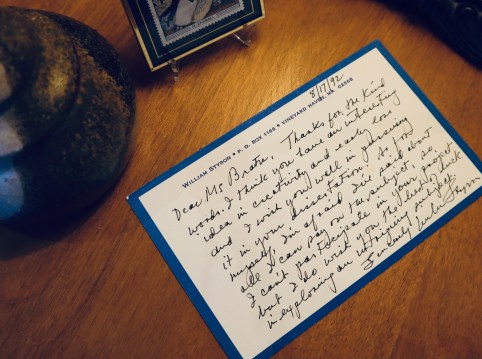 WILLIAM STYRON • P. O. BOX 1166 • VINEYARD HAVEN, MA. 02568
8/17/92
Dear Ms Brota, Thanks for the kind
words. I think you have an interesting
idea in creativity and early loss
and I wish you well in pursuing
it in your dissertation. As for
myself, I'm afraid I've said about
all I can say on the subject, so
I can't participate in your project
but I do wish you the best luck
in exploring an intriguing subject.
Sincerely William Styron